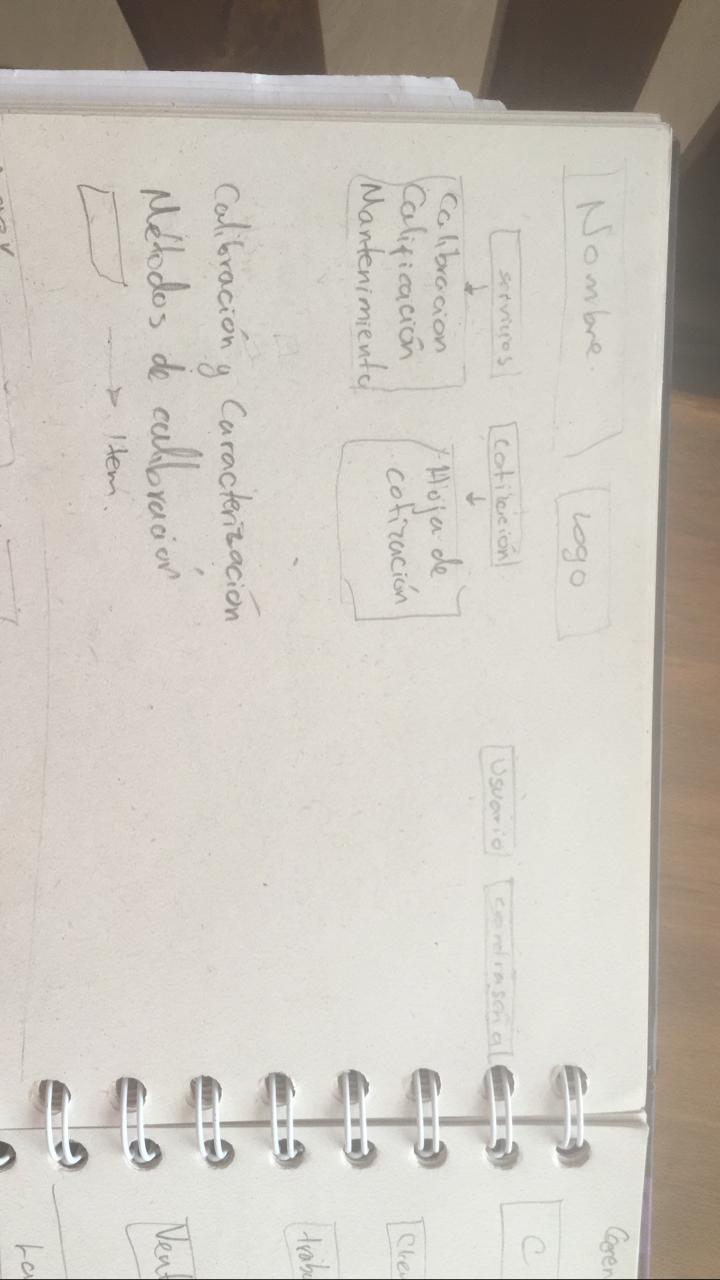 Nombre.
Logo
servicios
cotización
Usuario
contraseña
Calibracion
Calificación
Mantenimiento
Hoja de
cotización
Calibración y Caracterización
Métodos de calibración
Item.
C